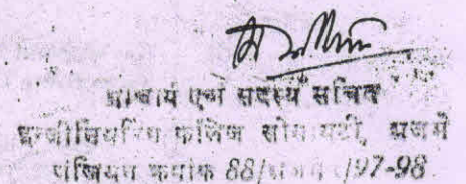 प्राचार्य एवं सदस्य सचिव
इन्जीनियरिंग कॉलेज सोसायटी, अजमेर
पंजियन क्रमांक 88/अजमेर/97-98